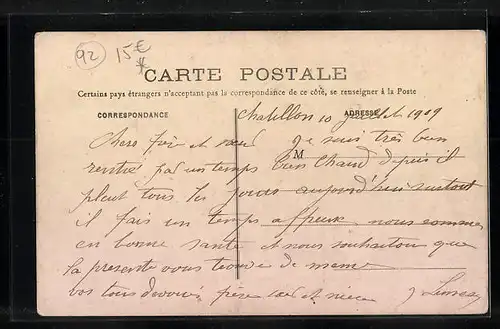 92
15€
*
CARTE POSTALE
Certains pays étrangers n'acceptant pas la correspondance de ce côté, se renseigner à la Poste
CORRESPONDANCE
ADRESSE
Chatillon 10 juillet 1909
Chers frère et sœur Je suis très bien
M
rentré par un temps bien chaud depuis il
pleut tous les jours aujourd'hui surtout
il fais un temps affreux nous sommes
en bonne santé et nous souhaiton que
la presente vous trouve de meme
vos tous devoués frère sœur et niece